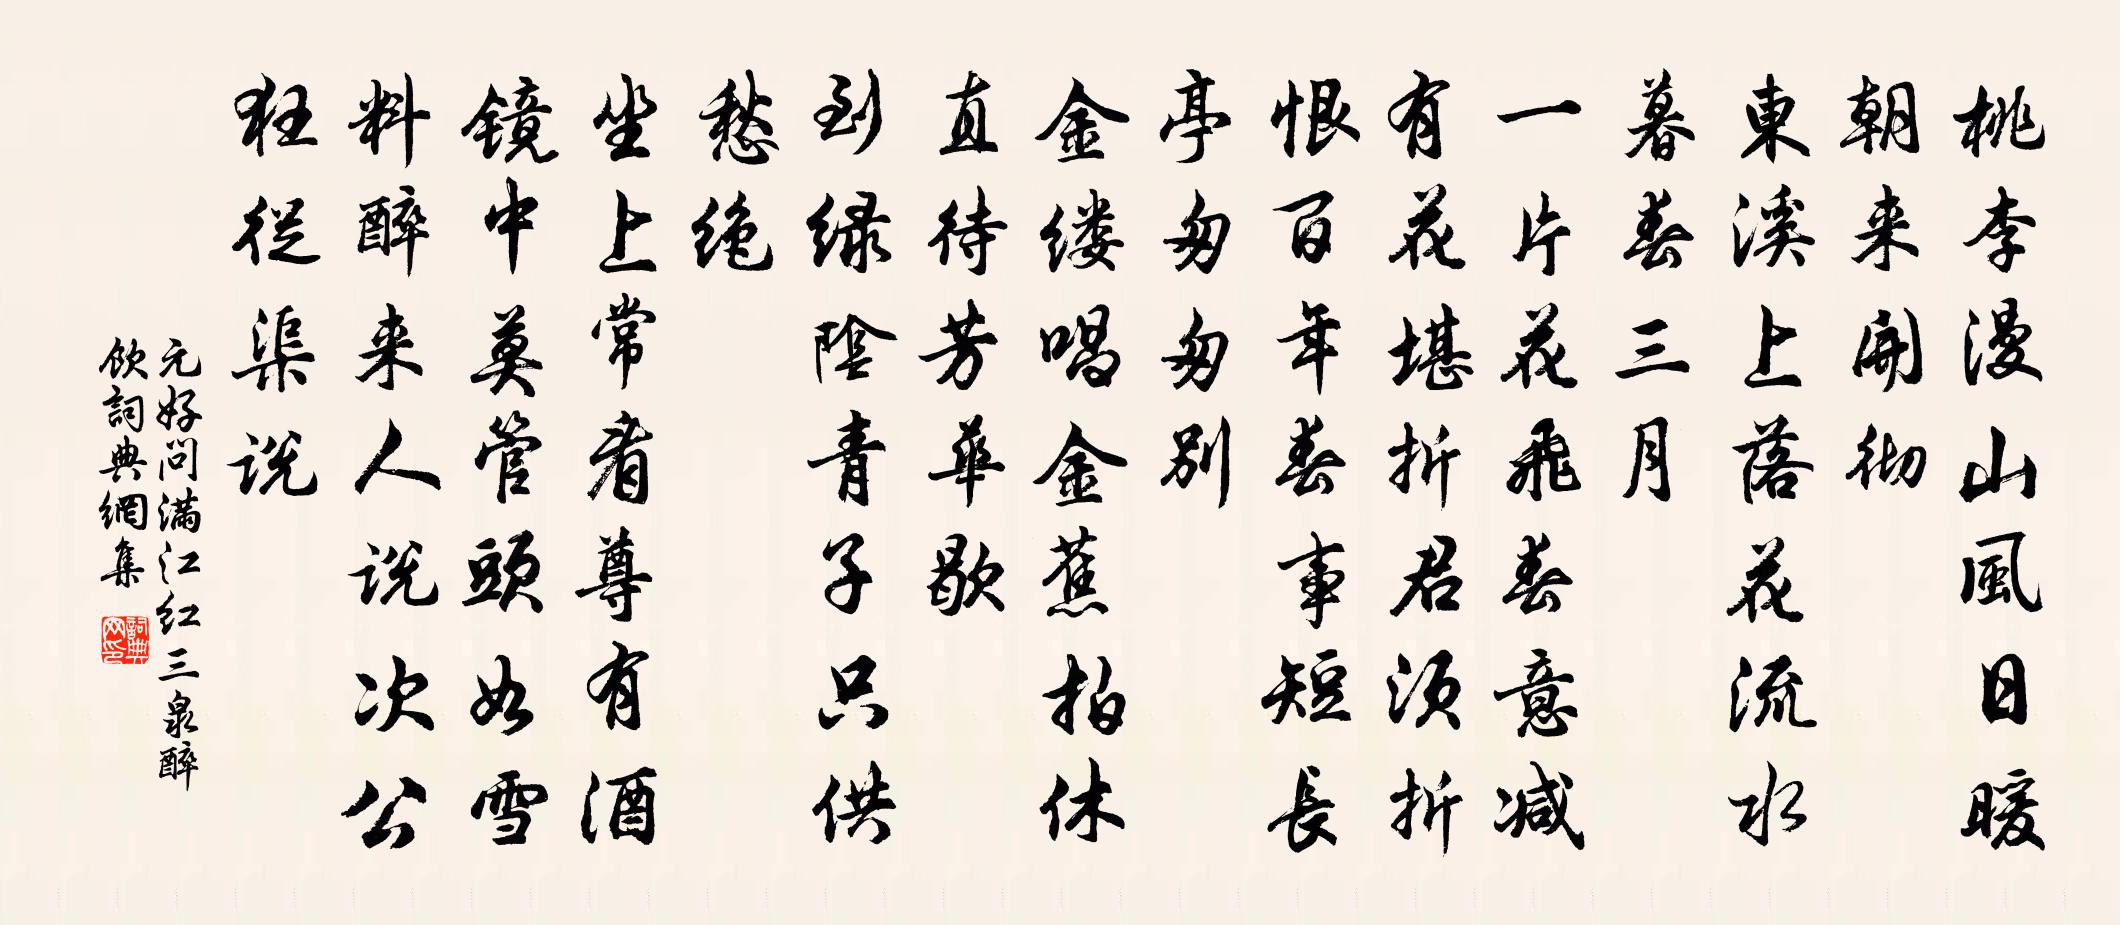 桃李漫山風日暖
朝来開彻
東溪上落花流水
暮春三月
一片花飛春意减
有花堪折君须折
恨百年春事短長
亭匆匆别
金缕唱金蕉拍休
直待芳華歇
到绿陰青子只供
愁绝
坐上常看尊有酒
镜中莫管頭如雪
料醉来人说次公
狂從渠说
元好问满江红三泉醉
飲詞典網集
詞典网印